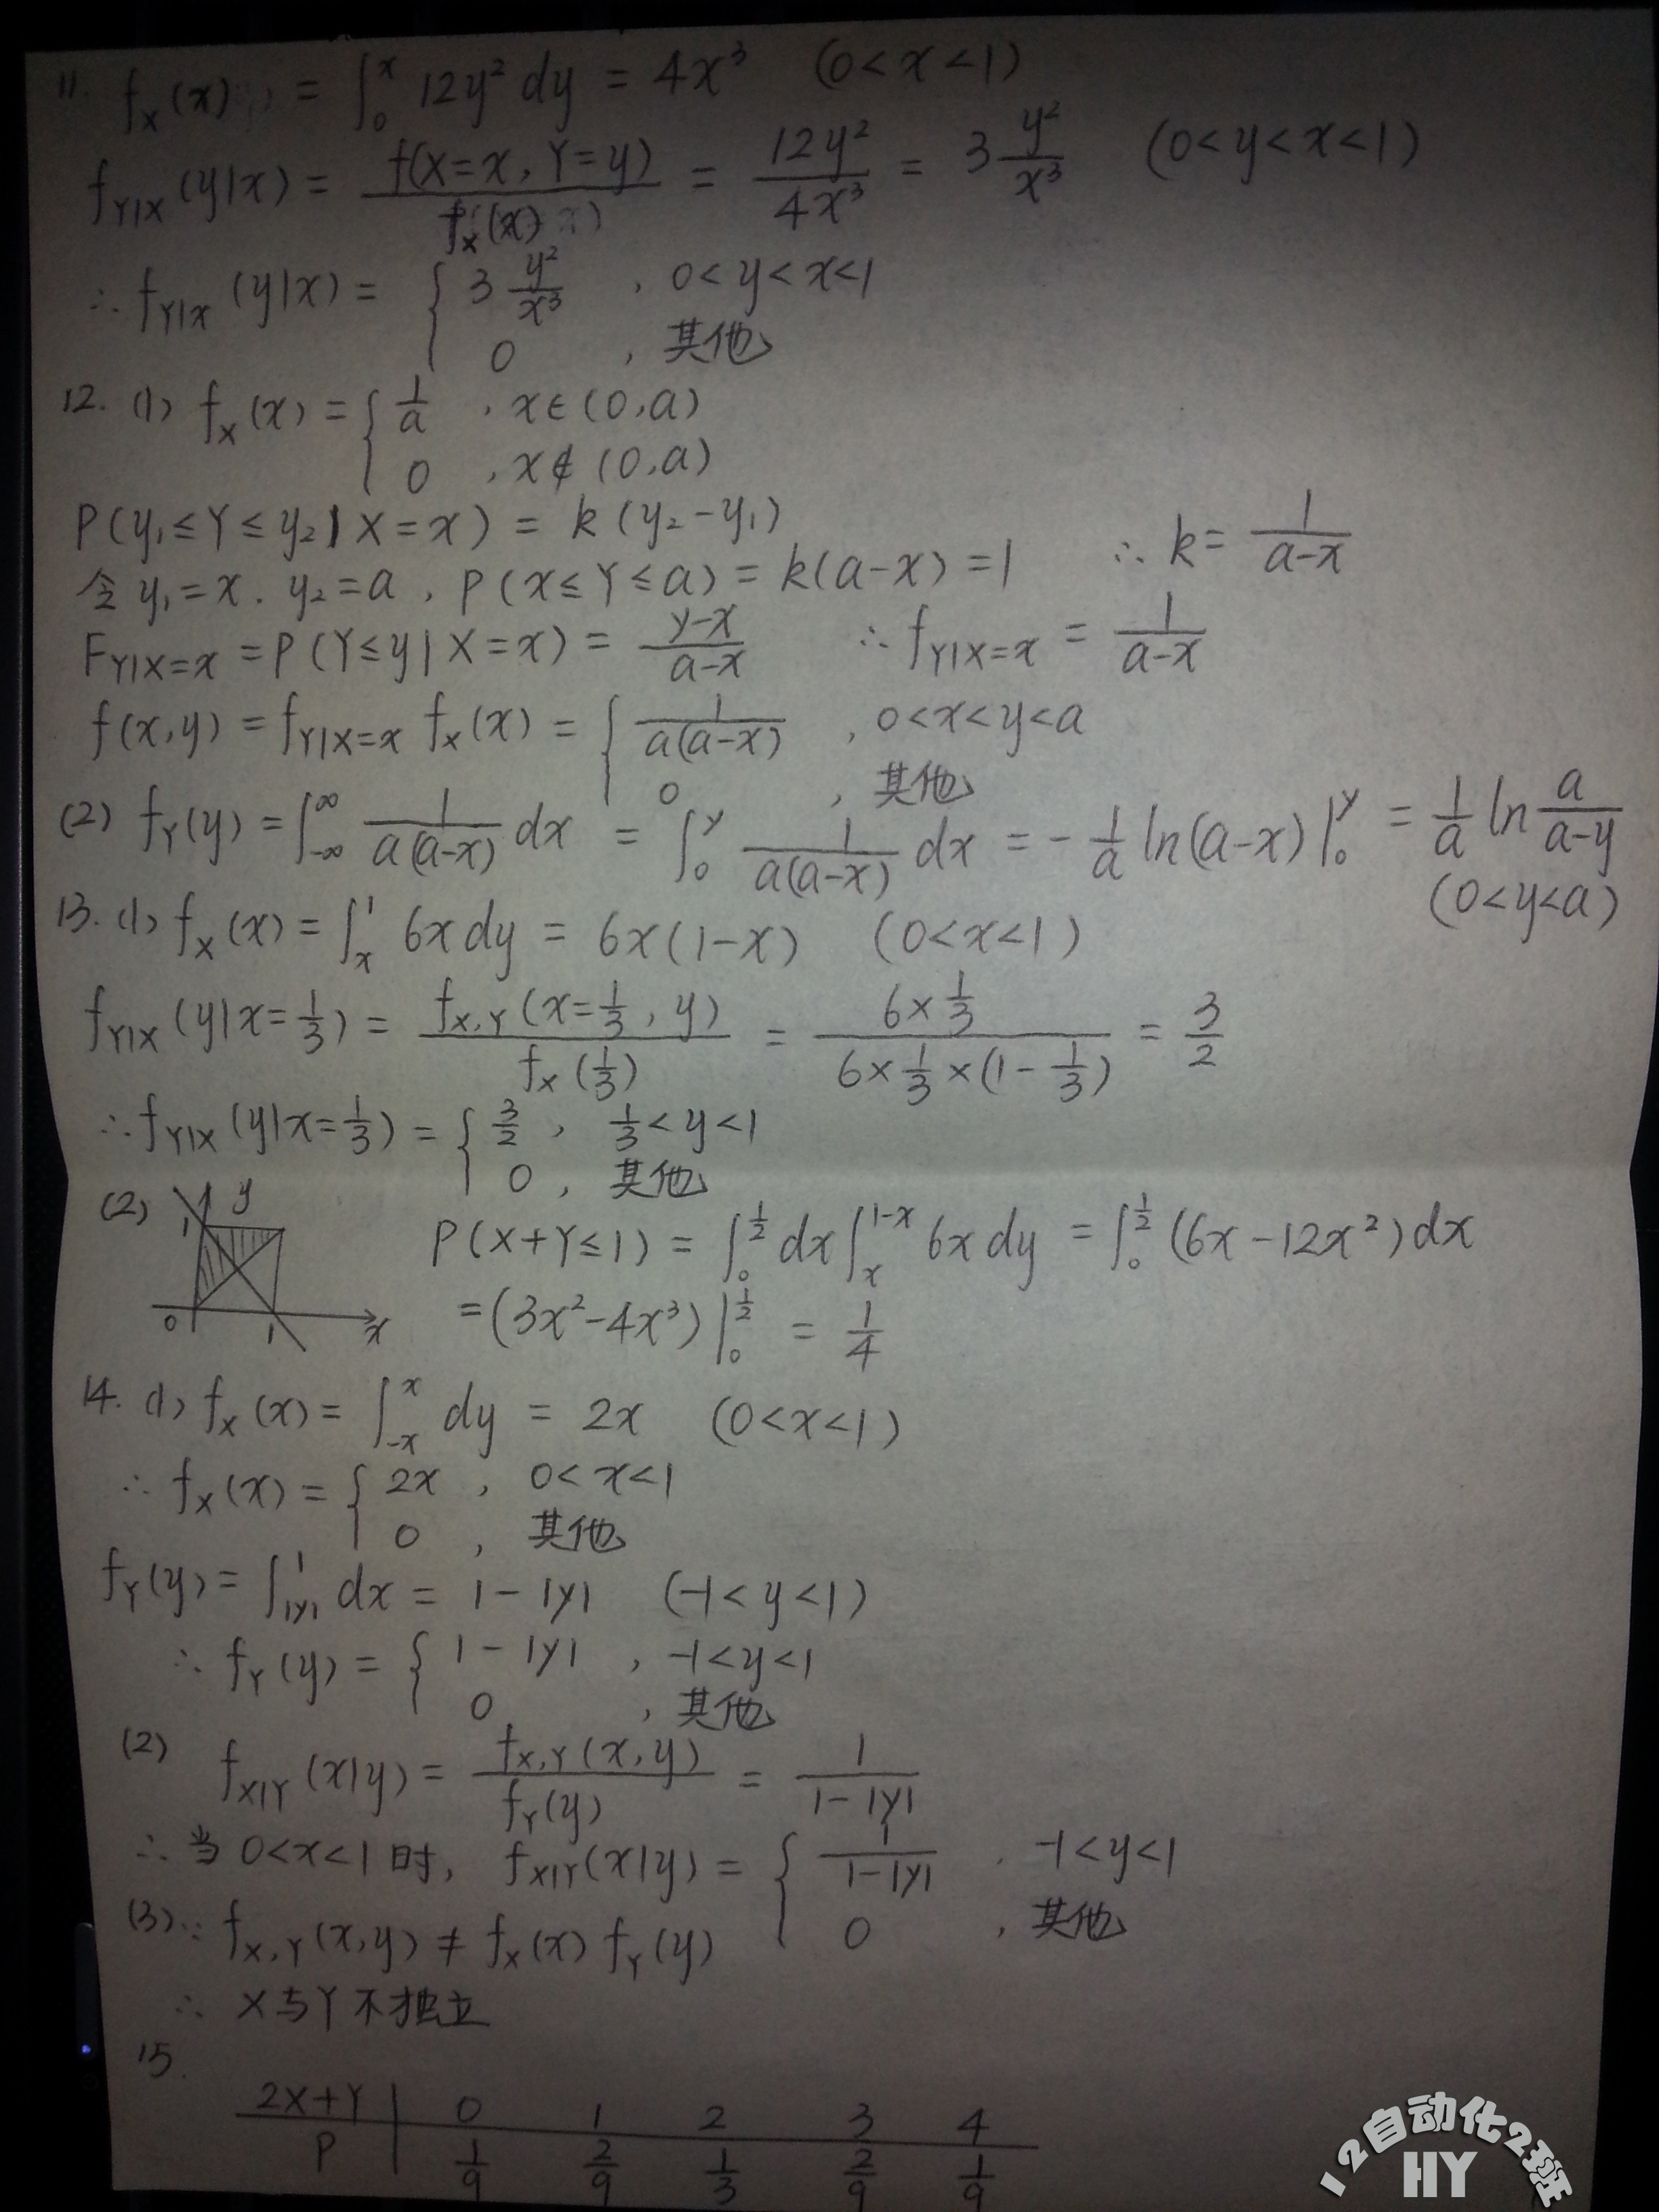 11. f_X(x) = ∫_0^x 12y² dy = 4x³ (0<x<1)
f_{Y|X}(y|x) = f(X=x, Y=y) / f_X(x) = 12y² / 4x³ = 3 y²/x³ (0<y<x<1)
∴ f_{Y|X}(y|x) = { 3 y²/x³ , 0<y<x<1
0 , 其他
12. (1) f_X(x) = { 1/a , x∈(0,a)
0 , x∉(0,a)
P(y₁≤Y≤y₂|X=x) = k(y₂-y₁)
令y₁=x. y₂=a, P(x≤Y≤a) = k(a-x) = 1 ∴ k = 1/(a-x)
F_{Y|X=x} = P(Y≤y|X=x) = (y-x)/(a-x) ∴ f_{Y|X=x} = 1/(a-x)
f(x,y) = f_{Y|X=x} f_X(x) = { 1/(a(a-x)) , 0<x<y<a
0 , 其他
(2) f_Y(y) = ∫_{-∞}^{∞} 1/(a(a-x)) dx = ∫_0^y 1/(a(a-x)) dx = - 1/a ln(a-x)|_0^y = 1/a ln a/(a-y)
(0<y<a)
13. (1) f_X(x) = ∫_x^1 6x dy = 6x(1-x) (0<x<1)
f_{Y|X}(y|x=1/3) = f_{X,Y}(x=1/3, y) / f_X(1/3) = 6×1/3 / (6×1/3×(1-1/3)) = 3/2
∴ f_{Y|X}(y|x=1/3) = { 3/2 , 1/3<y<1
0 , 其他
(2) y 1 0 1 x
P(X+Y≤1) = ∫_0^{1/2} dx ∫_x^{1-x} 6x dy = ∫_0^{1/2} (6x-12x²) dx
= (3x²-4x³)|_0^{1/2} = 1/4
14. (1) f_X(x) = ∫_{-x}^x dy = 2x (0<x<1)
∴ f_X(x) = { 2x , 0<x<1
0 , 其他
f_Y(y) = ∫_{|y|}^1 dx = 1-|y| (-1<y<1)
∴ f_Y(y) = { 1-|y| , -1<y<1
0 , 其他
(2) f_{X|Y}(x|y) = f_{X,Y}(x,y) / f_Y(y) = 1/(1-|y|)
∴ 当0<x<1时, f_{X|Y}(x|y) = { 1/(1-|y|) , -1<y<1
0 , 其他
(3) ∵ f_{X,Y}(x,y) ≠ f_X(x) f_Y(y)
∴ X与Y不独立
15.
2X+Y 0 1 2 3 4
P 1/9 2/9 1/3 2/9 1/9
12自动化2班
HY